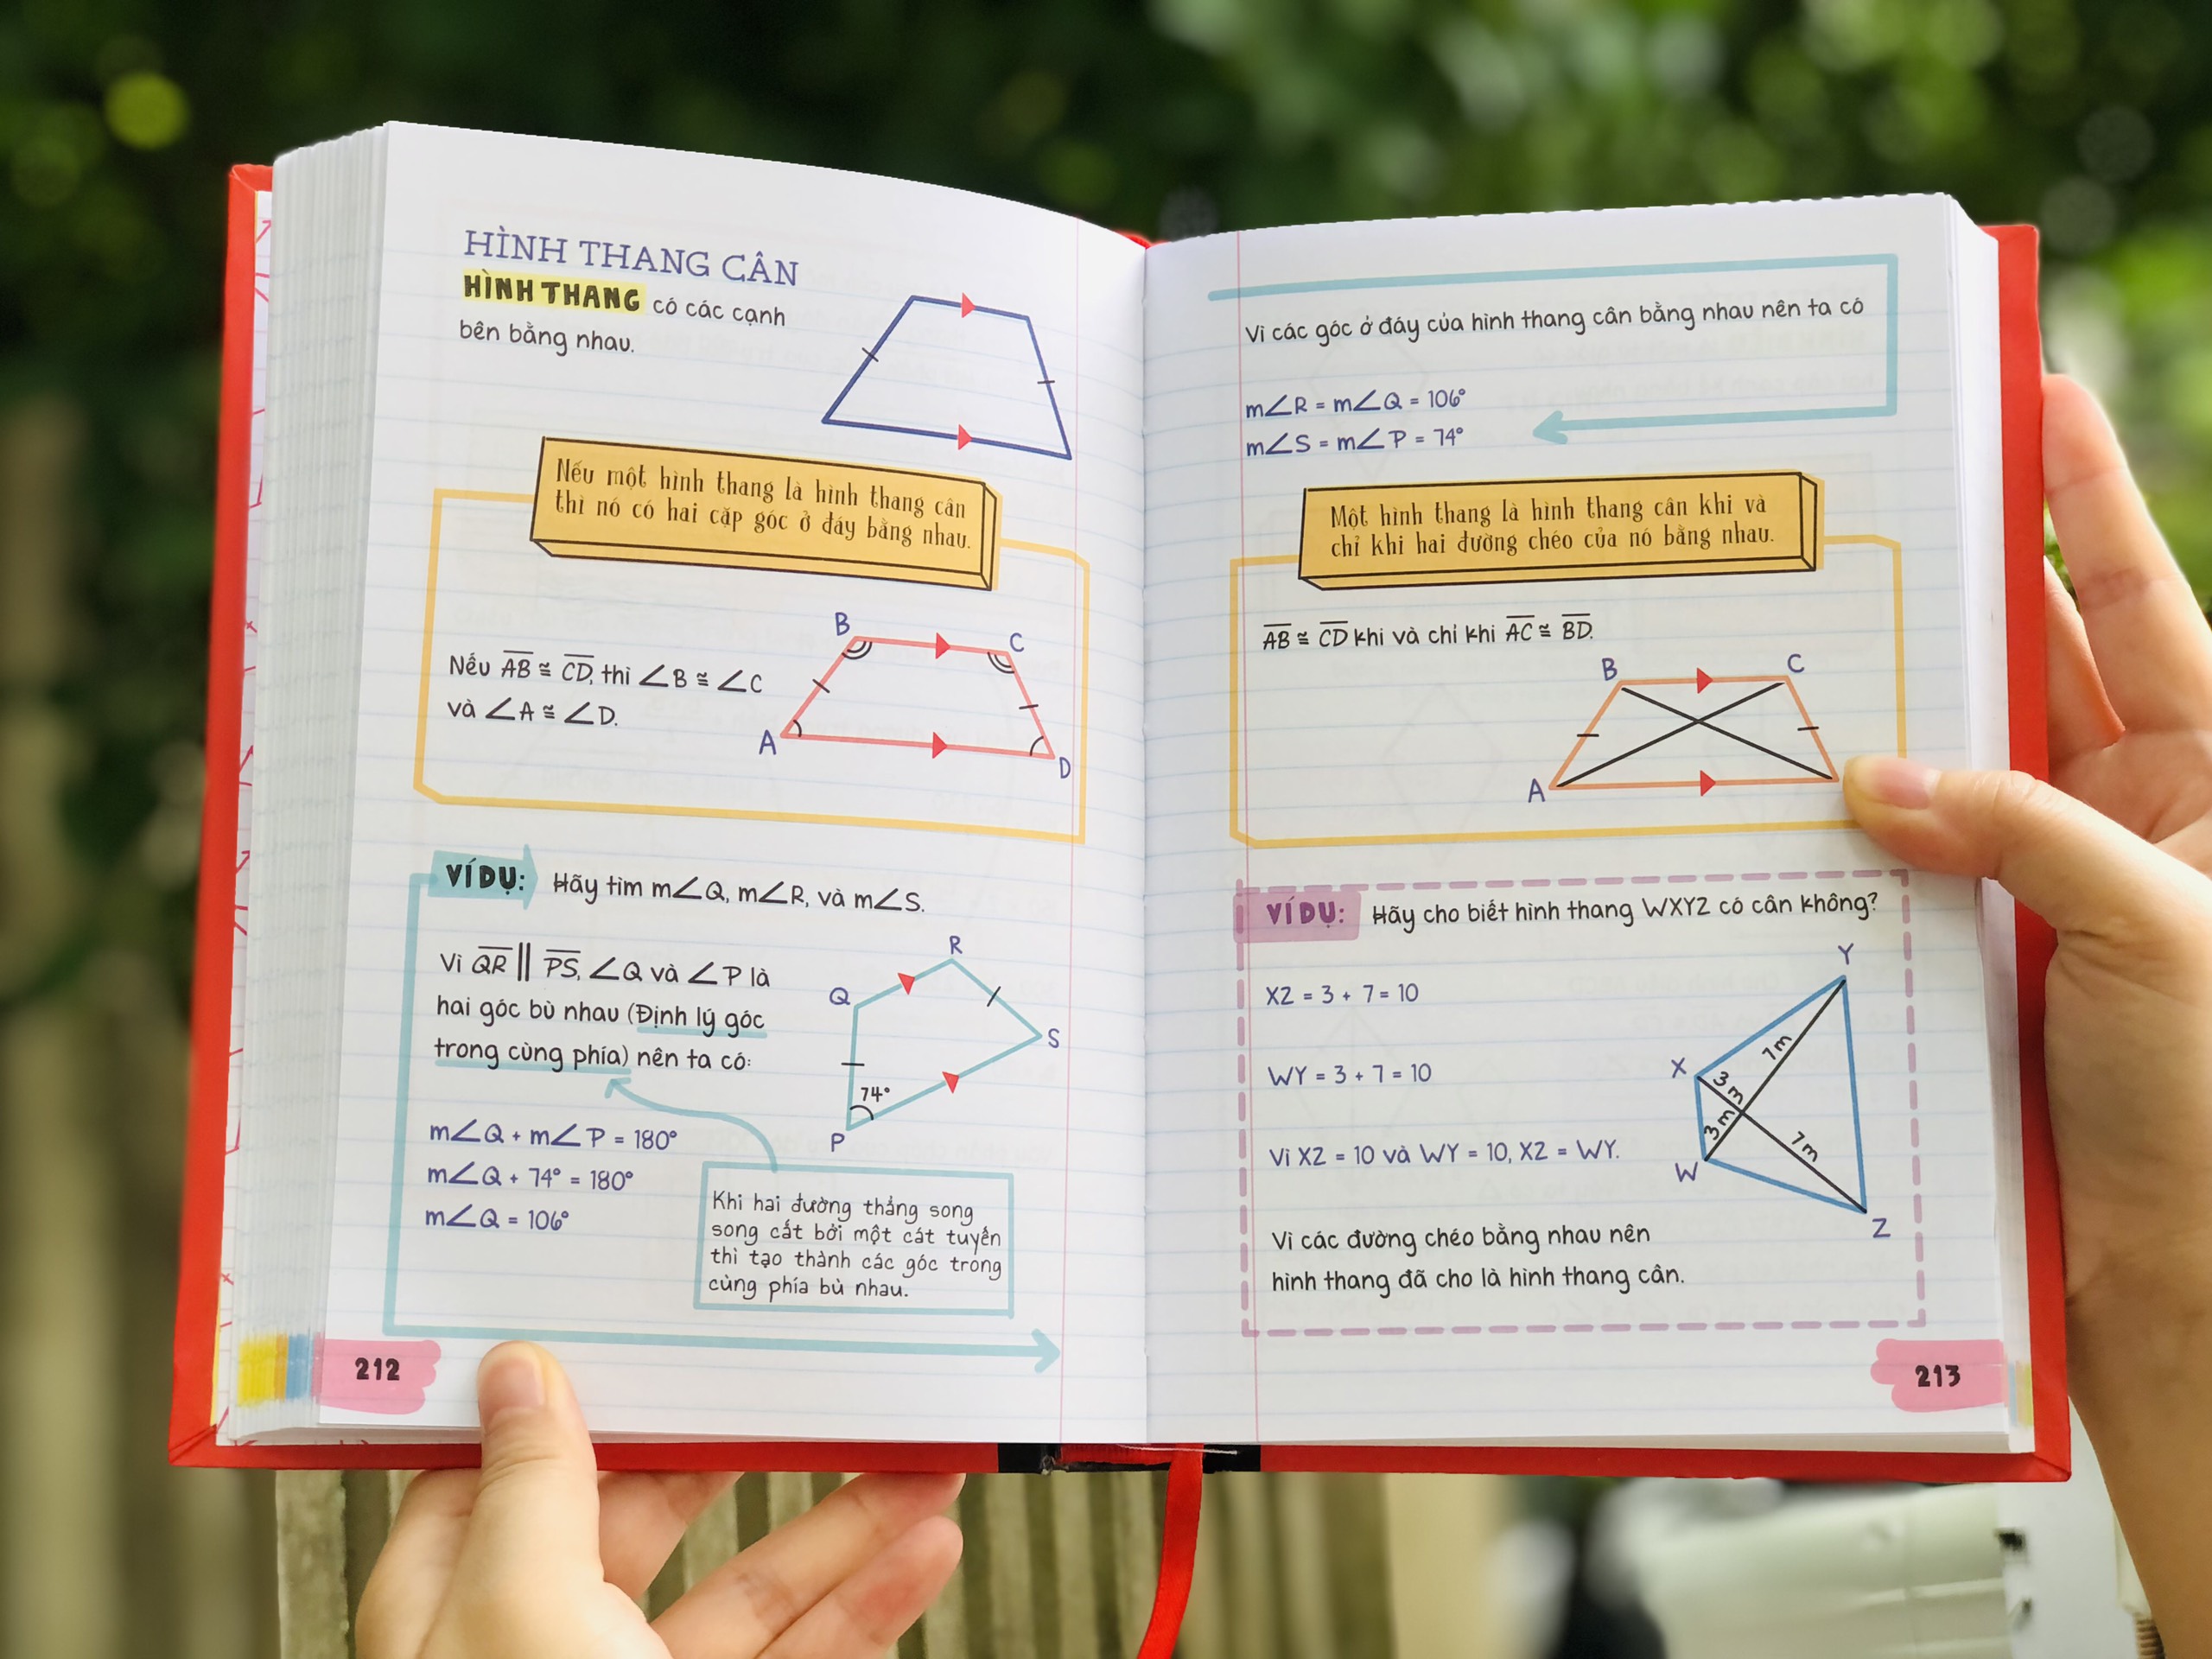 HÌNH THANG CÂN
HÌNH THANG có các cạnh
bên bằng nhau.
Nếu một hình thang là hình thang cân
thì nó có hai cặp góc ở đáy bằng nhau.
Nếu A̅B̅ ≅ C̅D̅, thì ∠B ≅ ∠C
và ∠A ≅ ∠D.
B
C
A
D
VÍ DỤ: Hãy tìm m∠Q, m∠R, và m∠S.
Vì Q̅R̅ || P̅S̅, ∠Q và ∠P là
hai góc bù nhau (Định lý góc
trong cùng phía) nên ta có:
m∠Q + m∠P = 180°
m∠Q + 74° = 180°
m∠Q = 106°
R
Q
S
74°
P
Khi hai đường thẳng song
song cắt bởi một cát tuyến
thì tạo thành các góc trong
cùng phía bù nhau.
212
Vì các góc ở đáy của hình thang cân bằng nhau nên ta có
m∠R = m∠Q = 106°
m∠S = m∠P = 74°
Một hình thang là hình thang cân khi và
chỉ khi hai đường chéo của nó bằng nhau.
A̅B̅ ≅ C̅D̅ khi và chỉ khi A̅C̅ ≅ B̅D̅.
B
C
A
VÍ DỤ: Hãy cho biết hình thang WXYZ có cân không?
XZ = 3 + 7 = 10
WY = 3 + 7 = 10
Vì XZ = 10 và WY = 10, XZ = WY.
Vì các đường chéo bằng nhau nên
hình thang đã cho là hình thang cân.
Y
7m
X
3m
3m
7m
W
Z
213